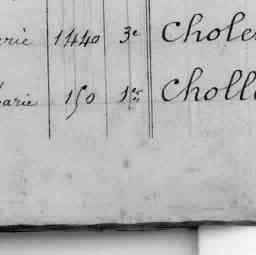 arie 1440 3e Chole
arie 150 1er Choll